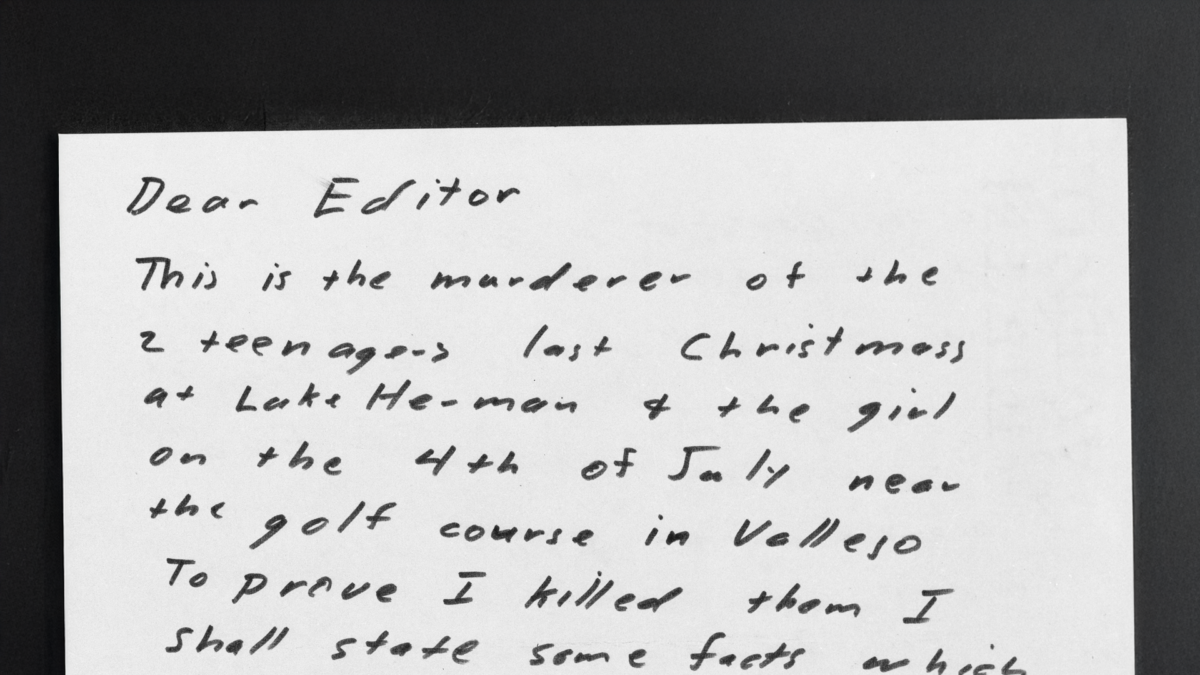 Dear Editor
This is the murderer of the
2 teenagers last Christmass
at Lake Herman & the girl
on the 4th of July near
the golf course in Vallejo
To prove I killed them I
shall state some facts which